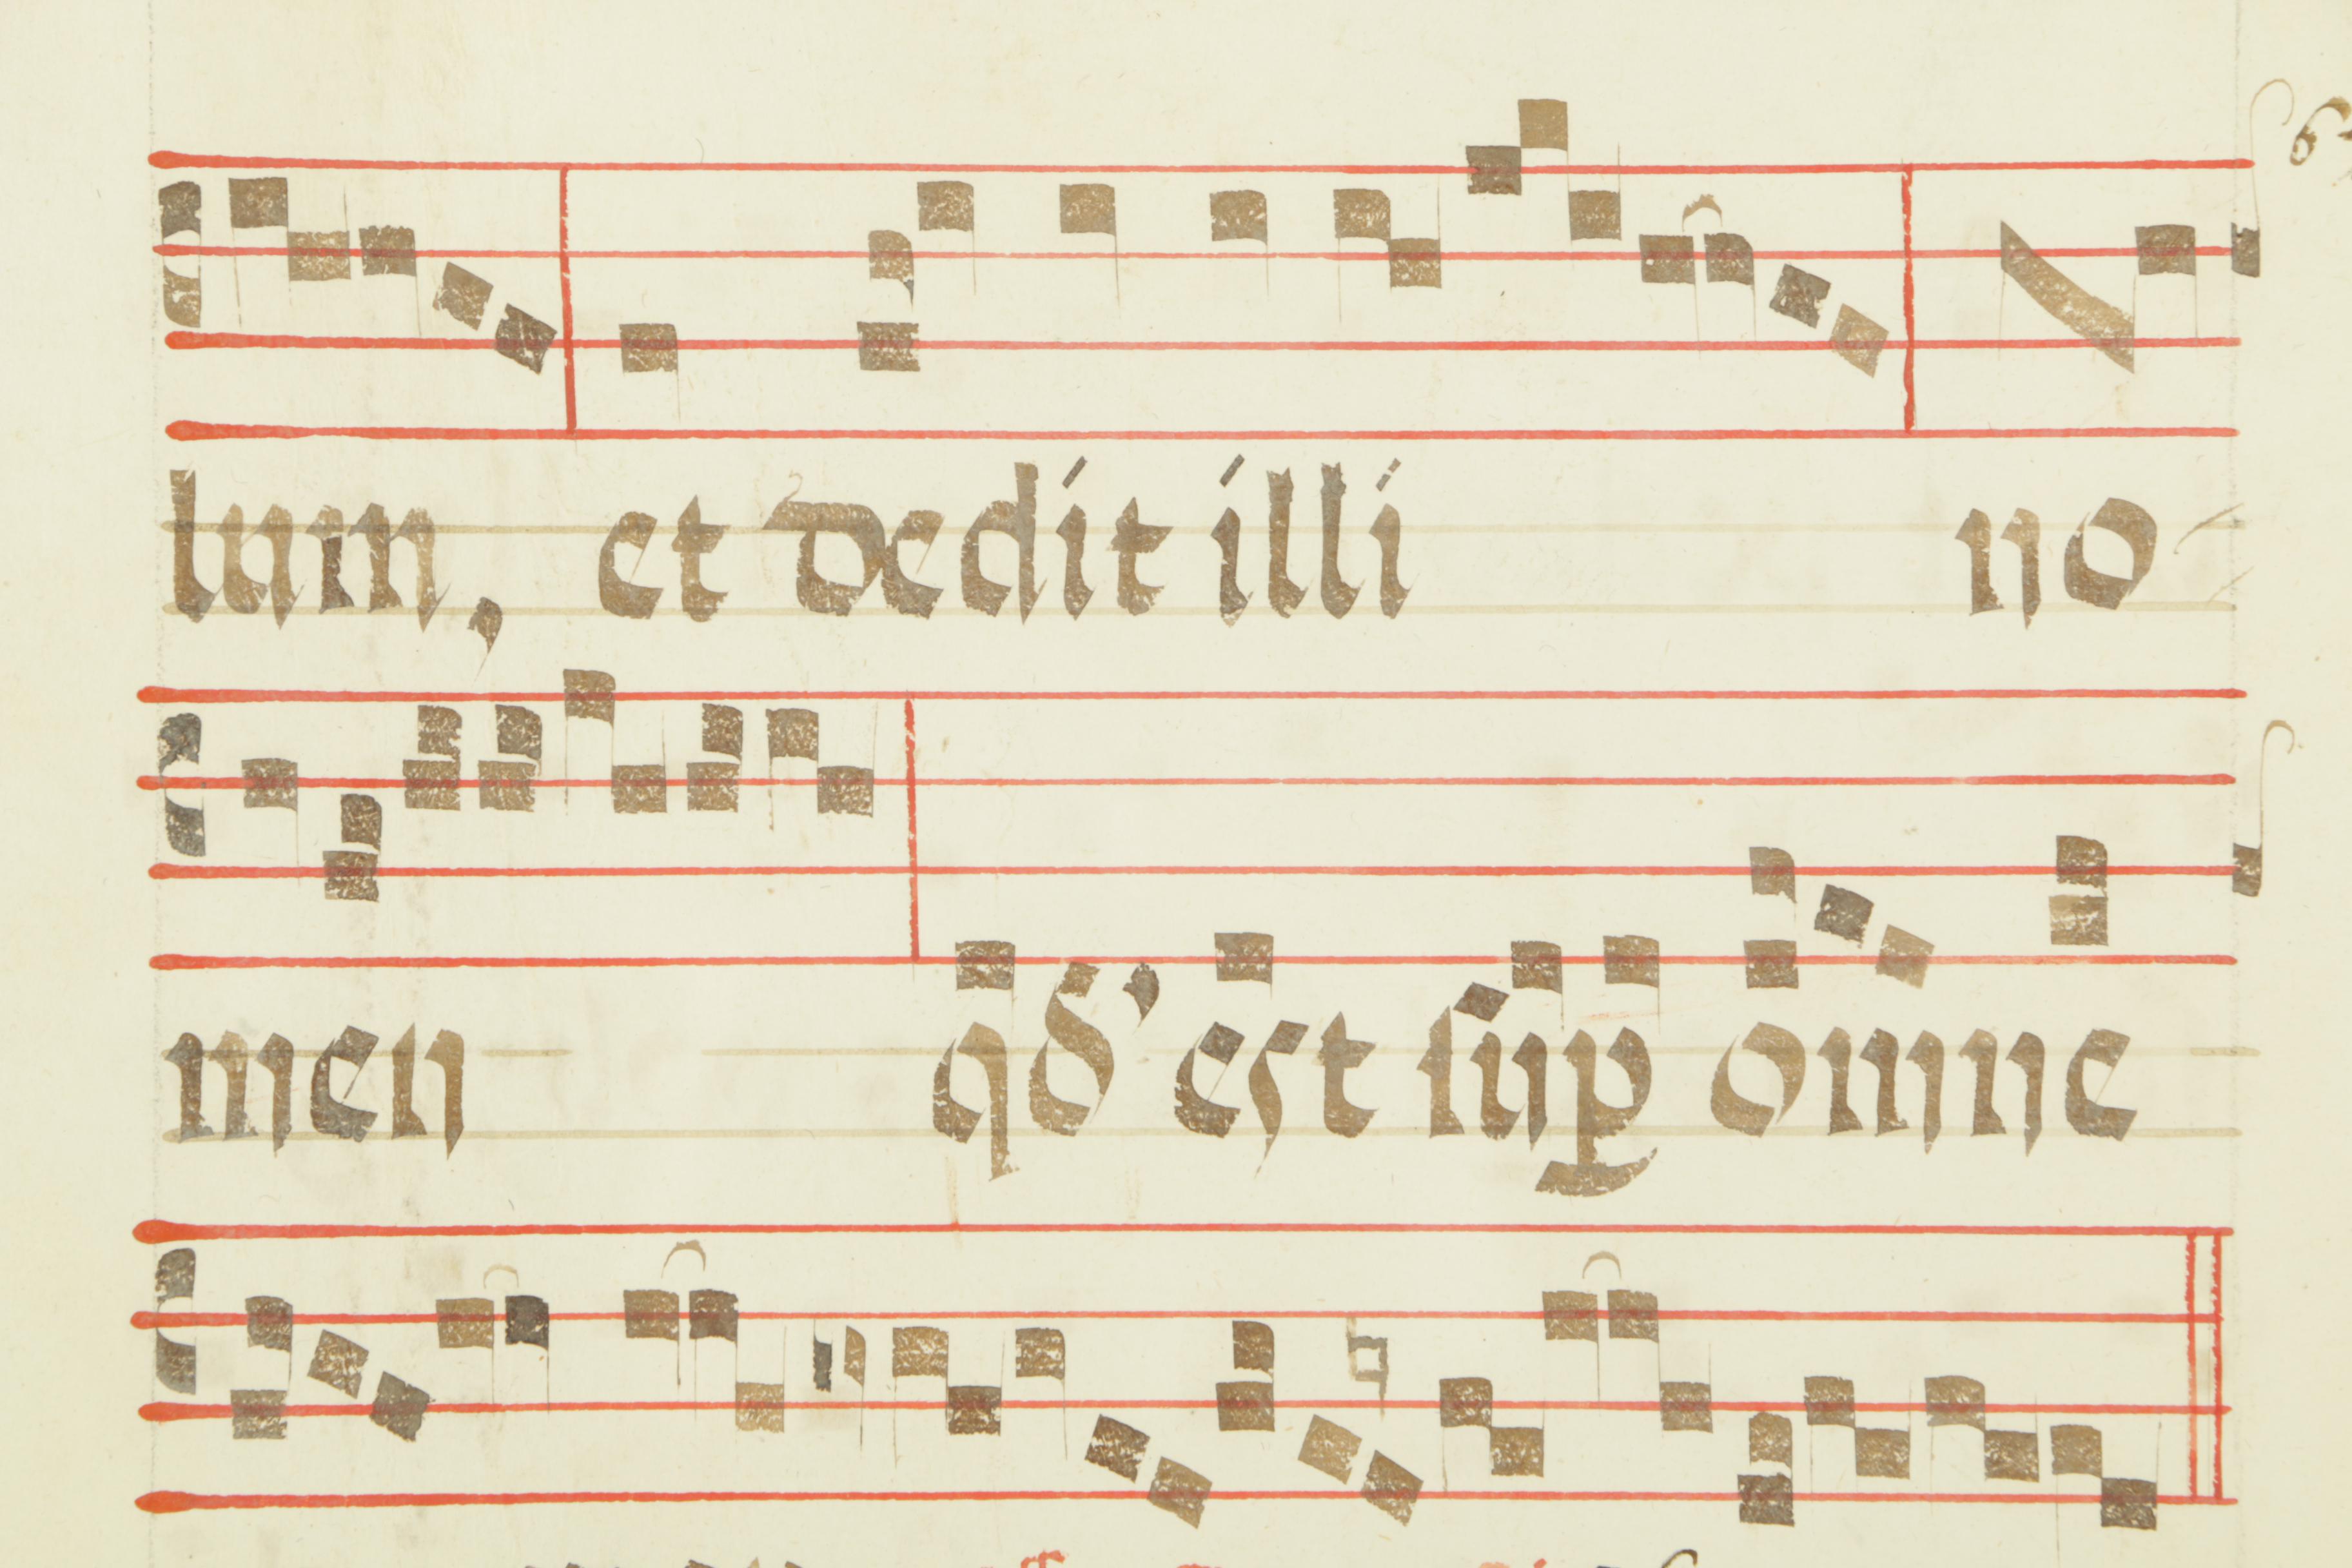 tum, et dedit illi no-
men qd' est sup omne